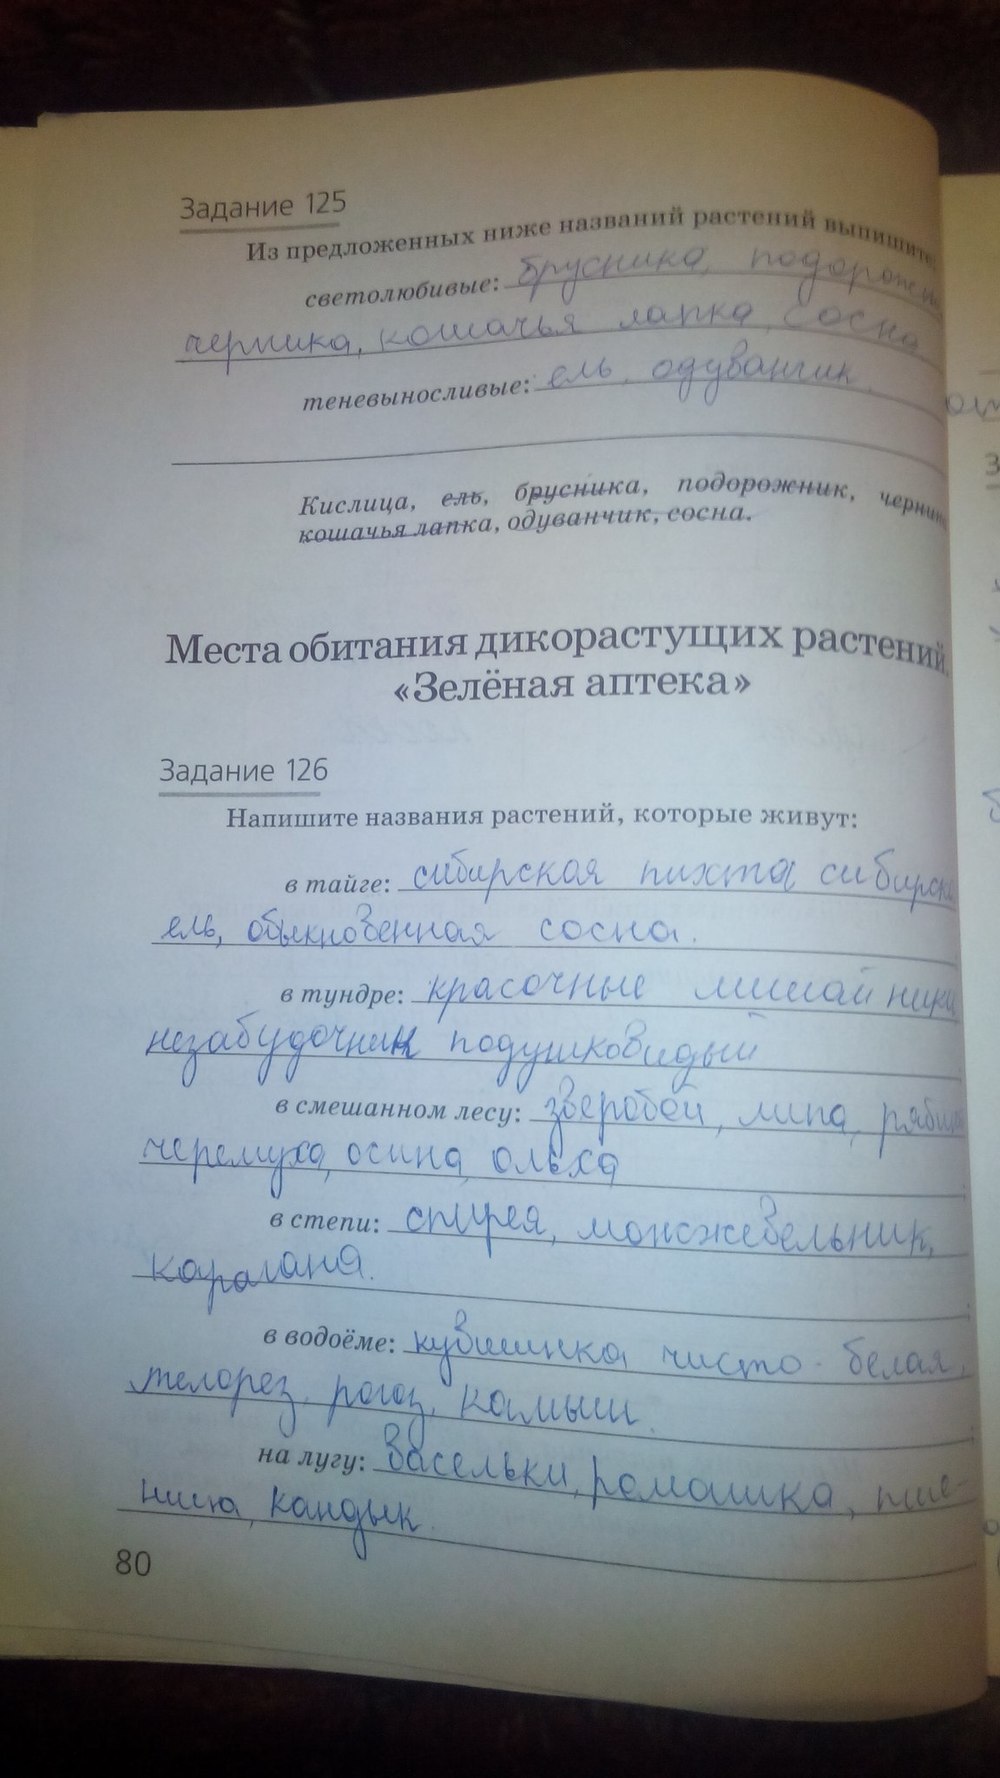 Задание 125
Из предложенных ниже названий растений выпишите
светолюбивые: брусника, подорожн
черника, кошачья лапка, сосна
теневыносливые: ель, одуванчик.
Кислица, ель, брусника, подорожник, черник
кошачья лапка, одуванчик, сосна.
Места обитания дикорастущих растений.
«Зелёная аптека»
Задание 126
Напишите названия растений, которые живут:
в тайге: сибирская пихта сибирска
ель, обыкновенная сосна.
в тундре: красочные лишайники
незабудочник подушковидый
в смешанном лесу: зверобой, липа, рябин
черемуха, осина, ольха
в степи: спирея, можжевельник,
карагана.
в водоёме: кувшинка чисто-белая,
телорез, рогоз, камыш.
на лугу: васельки, ромашка,
кандык.
80